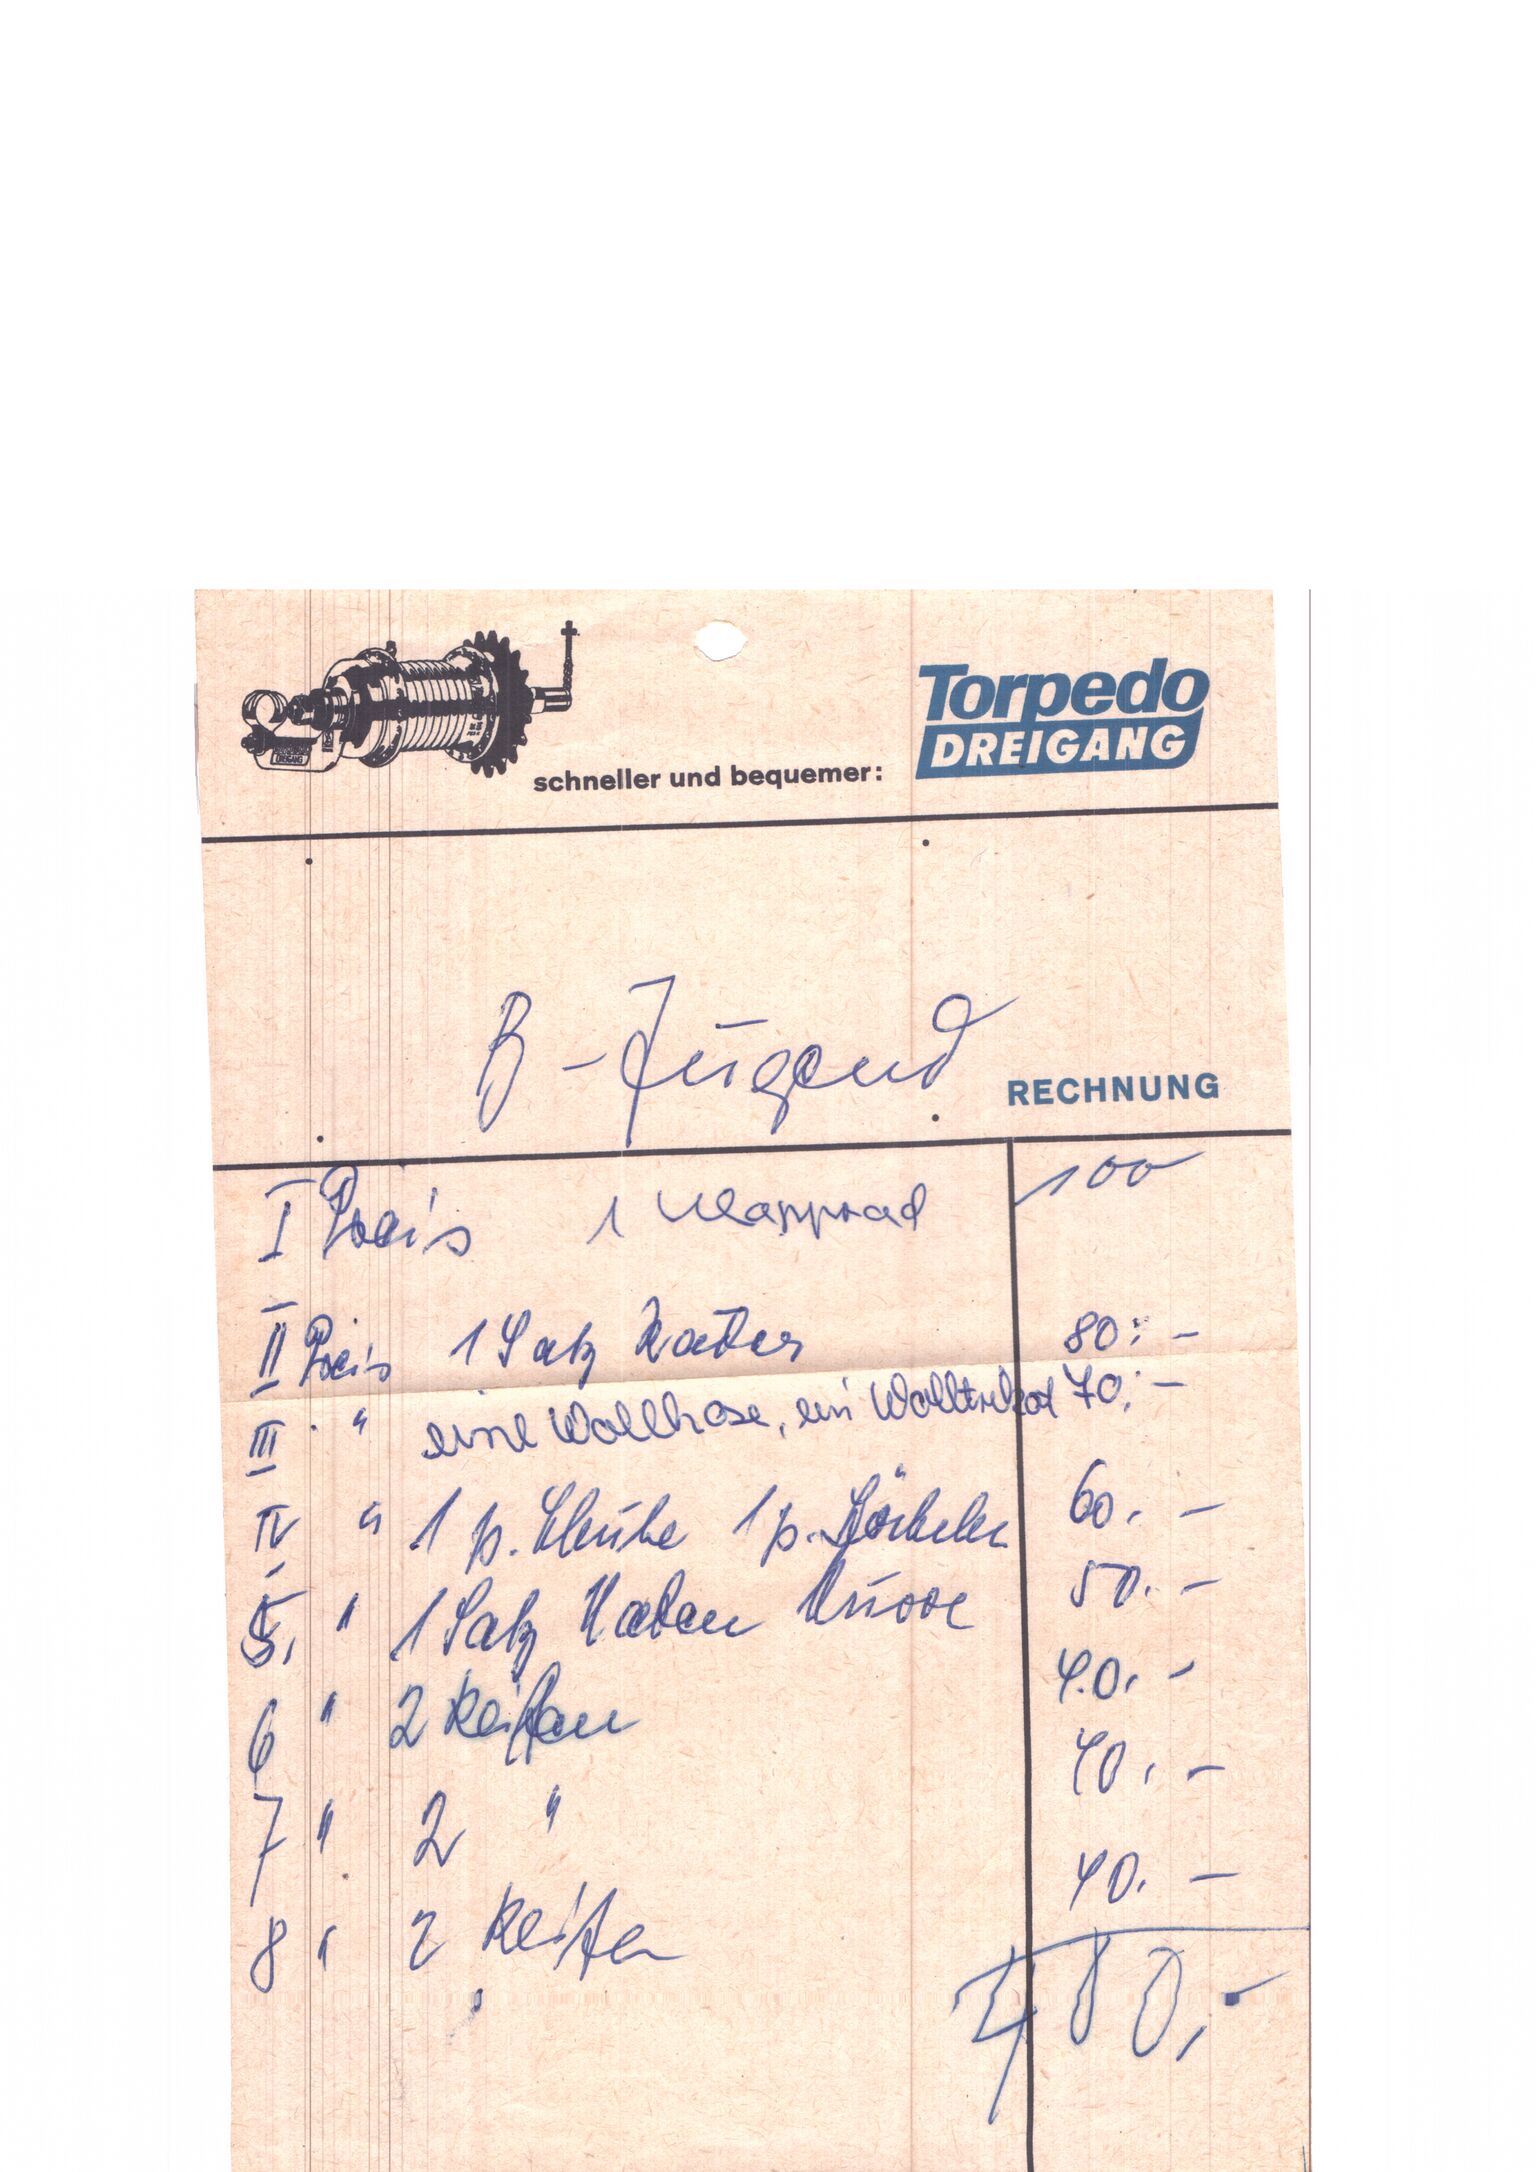 Torpedo
DREIGANG
DREIGANG
schneller und bequemer:
B-Jugend
RECHNUNG
I Preis 1 Klapprad 100
II Preis 1 Satz Räder 80.-
III " eine Wollhose, ein Wolltrikot 70.-
IV " 1 p. Schuhe 1 p. Söckchen 60.-
5. " 1 Satz Naben Suisse 50.-
6 " 2 Reifen 40.-
7 " 2 " 40.-
8 " 2 Reifen 40.-
480,-